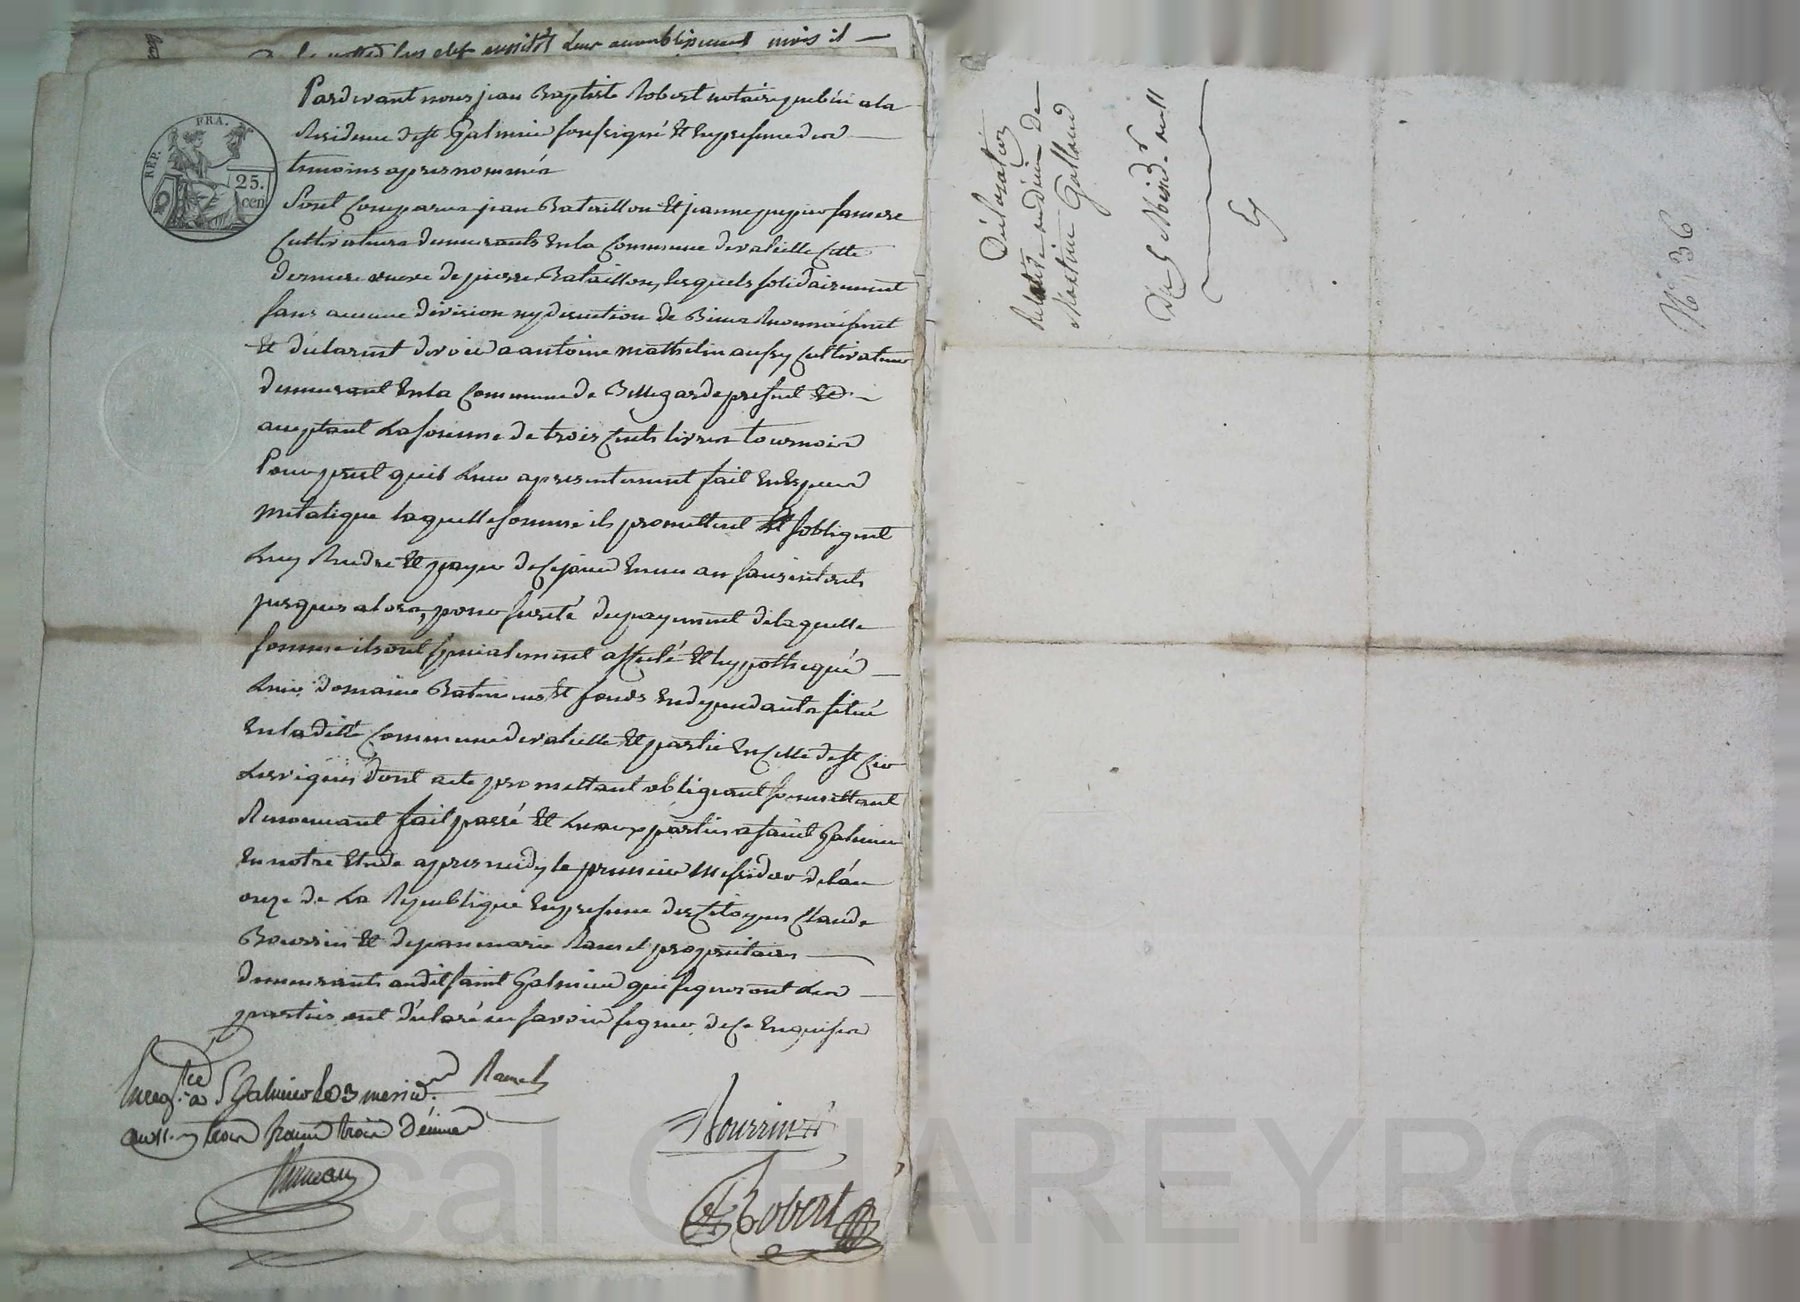 Pardevant nous jean Baptiste Robert notaire public a la
Residence de st Galmier soussigné Et En presence des
temoins apres nommés
REP. FRA.
25. cen
Sont Comparus jean Bataillon Et jeanne sa mere
Cultivateurs demeurants En la Commune de valeille Cette
derniere veuve de pierre Bataillon, lesquels solidairement
sans aucune division ny discution de Biens Reconnoissent
Et déclarent devoir a antoine mathelin aussy Cultivateur
demeurant En la Commune de Bellegarde present Et
aceptant La somme de trois Cents livres tournois
Pour prest quil Leur a presentement fait En Especes
metalique laquelle somme ils promettent Et s'obligent
Luy Rendre Et payer de Ce jour En un an sans interets
jusques alors, pour sureté du payement de laquelle
somme ils ont specialement affecté Et hypothequés
Leur domaine Batimens Et fonds En dependants situé
En la ditte Commune de valeille Et partie En Celle de st Cir
Les vignes dont acte promettant obligeant soumettant
Renonceant fait passé Et Lu aux parties a saint Galmier
En notre Etude apres midy le premier messidor de l'an
onze de La Republique En presence des Citoyens Claude
Bourrin Et de jean marie Ramel proprietaires
demeurants audit saint Galmier qui signeront Les
parties ont déclaré ne savoir signer de Ce Enquises
Ramel
Enreg.té a St Galmier le 3 messid.or
an 11. trois francs trois décimes
Bourrin
Robert
Déclaration
Relative au décès de
Martine Galland
Du 5 Messid.r an 11
N.° 36
cal CHAREYRON